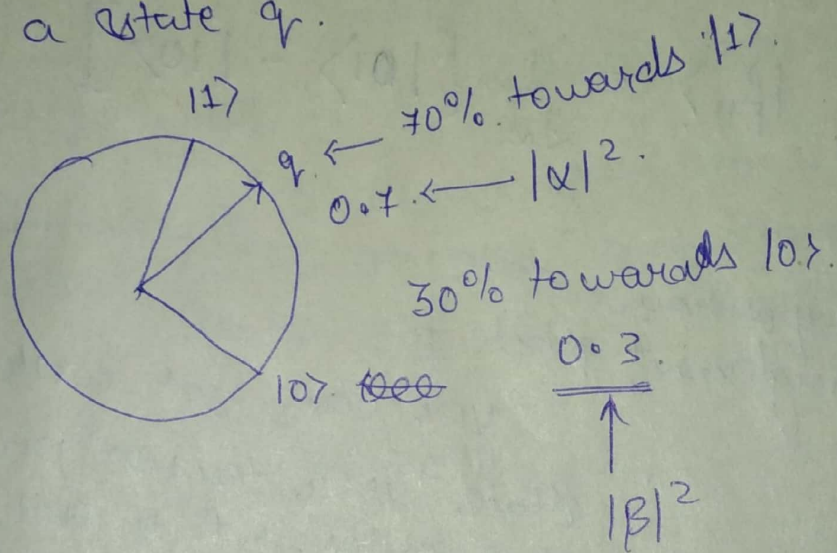 a state q.
|1>
q. ← 70% towards |1>.
0.7. ← |α|².
30% towards |0>.
0.3.
|0>
|β|²